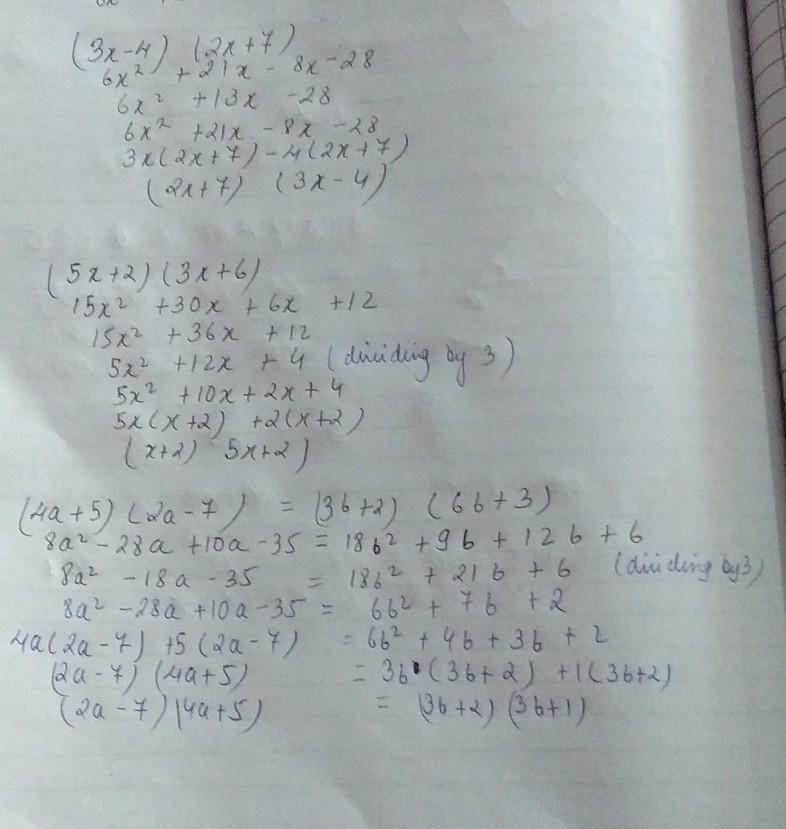 (3x-4) (2x+7)
6x² + 21x - 8x - 28
6x² + 13x - 28
6x² + 21x - 8x - 28
3x(2x+7) - 4(2x+7)
(2x+7) (3x-4)
(5x+2) (3x+6)
15x² + 30x + 6x + 12
15x² + 36x + 12
5x² + 12x + 4 (dividing by 3)
5x² + 10x + 2x + 4
5x(x+2) + 2(x+2)
(x+2) 5x+2)
(4a+5) (2a-7) = (3b+2) (6b+3)
8a² - 28a + 10a - 35 = 18b² + 9b + 12b + 6
8a² - 18a - 35 = 18b² + 21b + 6 (dividing by 3)
8a² - 28a + 10a - 35 = 6b² + 7b + 2
4a(2a-7) + 5(2a-7) = 6b² + 4b + 3b + 2
(2a-7) (4a+5) = 3b (3b+2) + 1(3b+2)
(2a-7) (4a+5) = (3b+2) (3b+1)